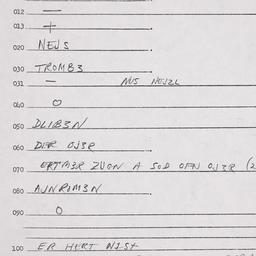 012 —
013 +
020 NEUS
030 TROMB3
031 — NUS NEUZL
040 O
050 DLIB3N
060 DER OJ3R
070 ERTM3R ZUON A SOD OFN OJ3R (2
080 AJNRIM3N
090 O
100 ER HERT NISHT